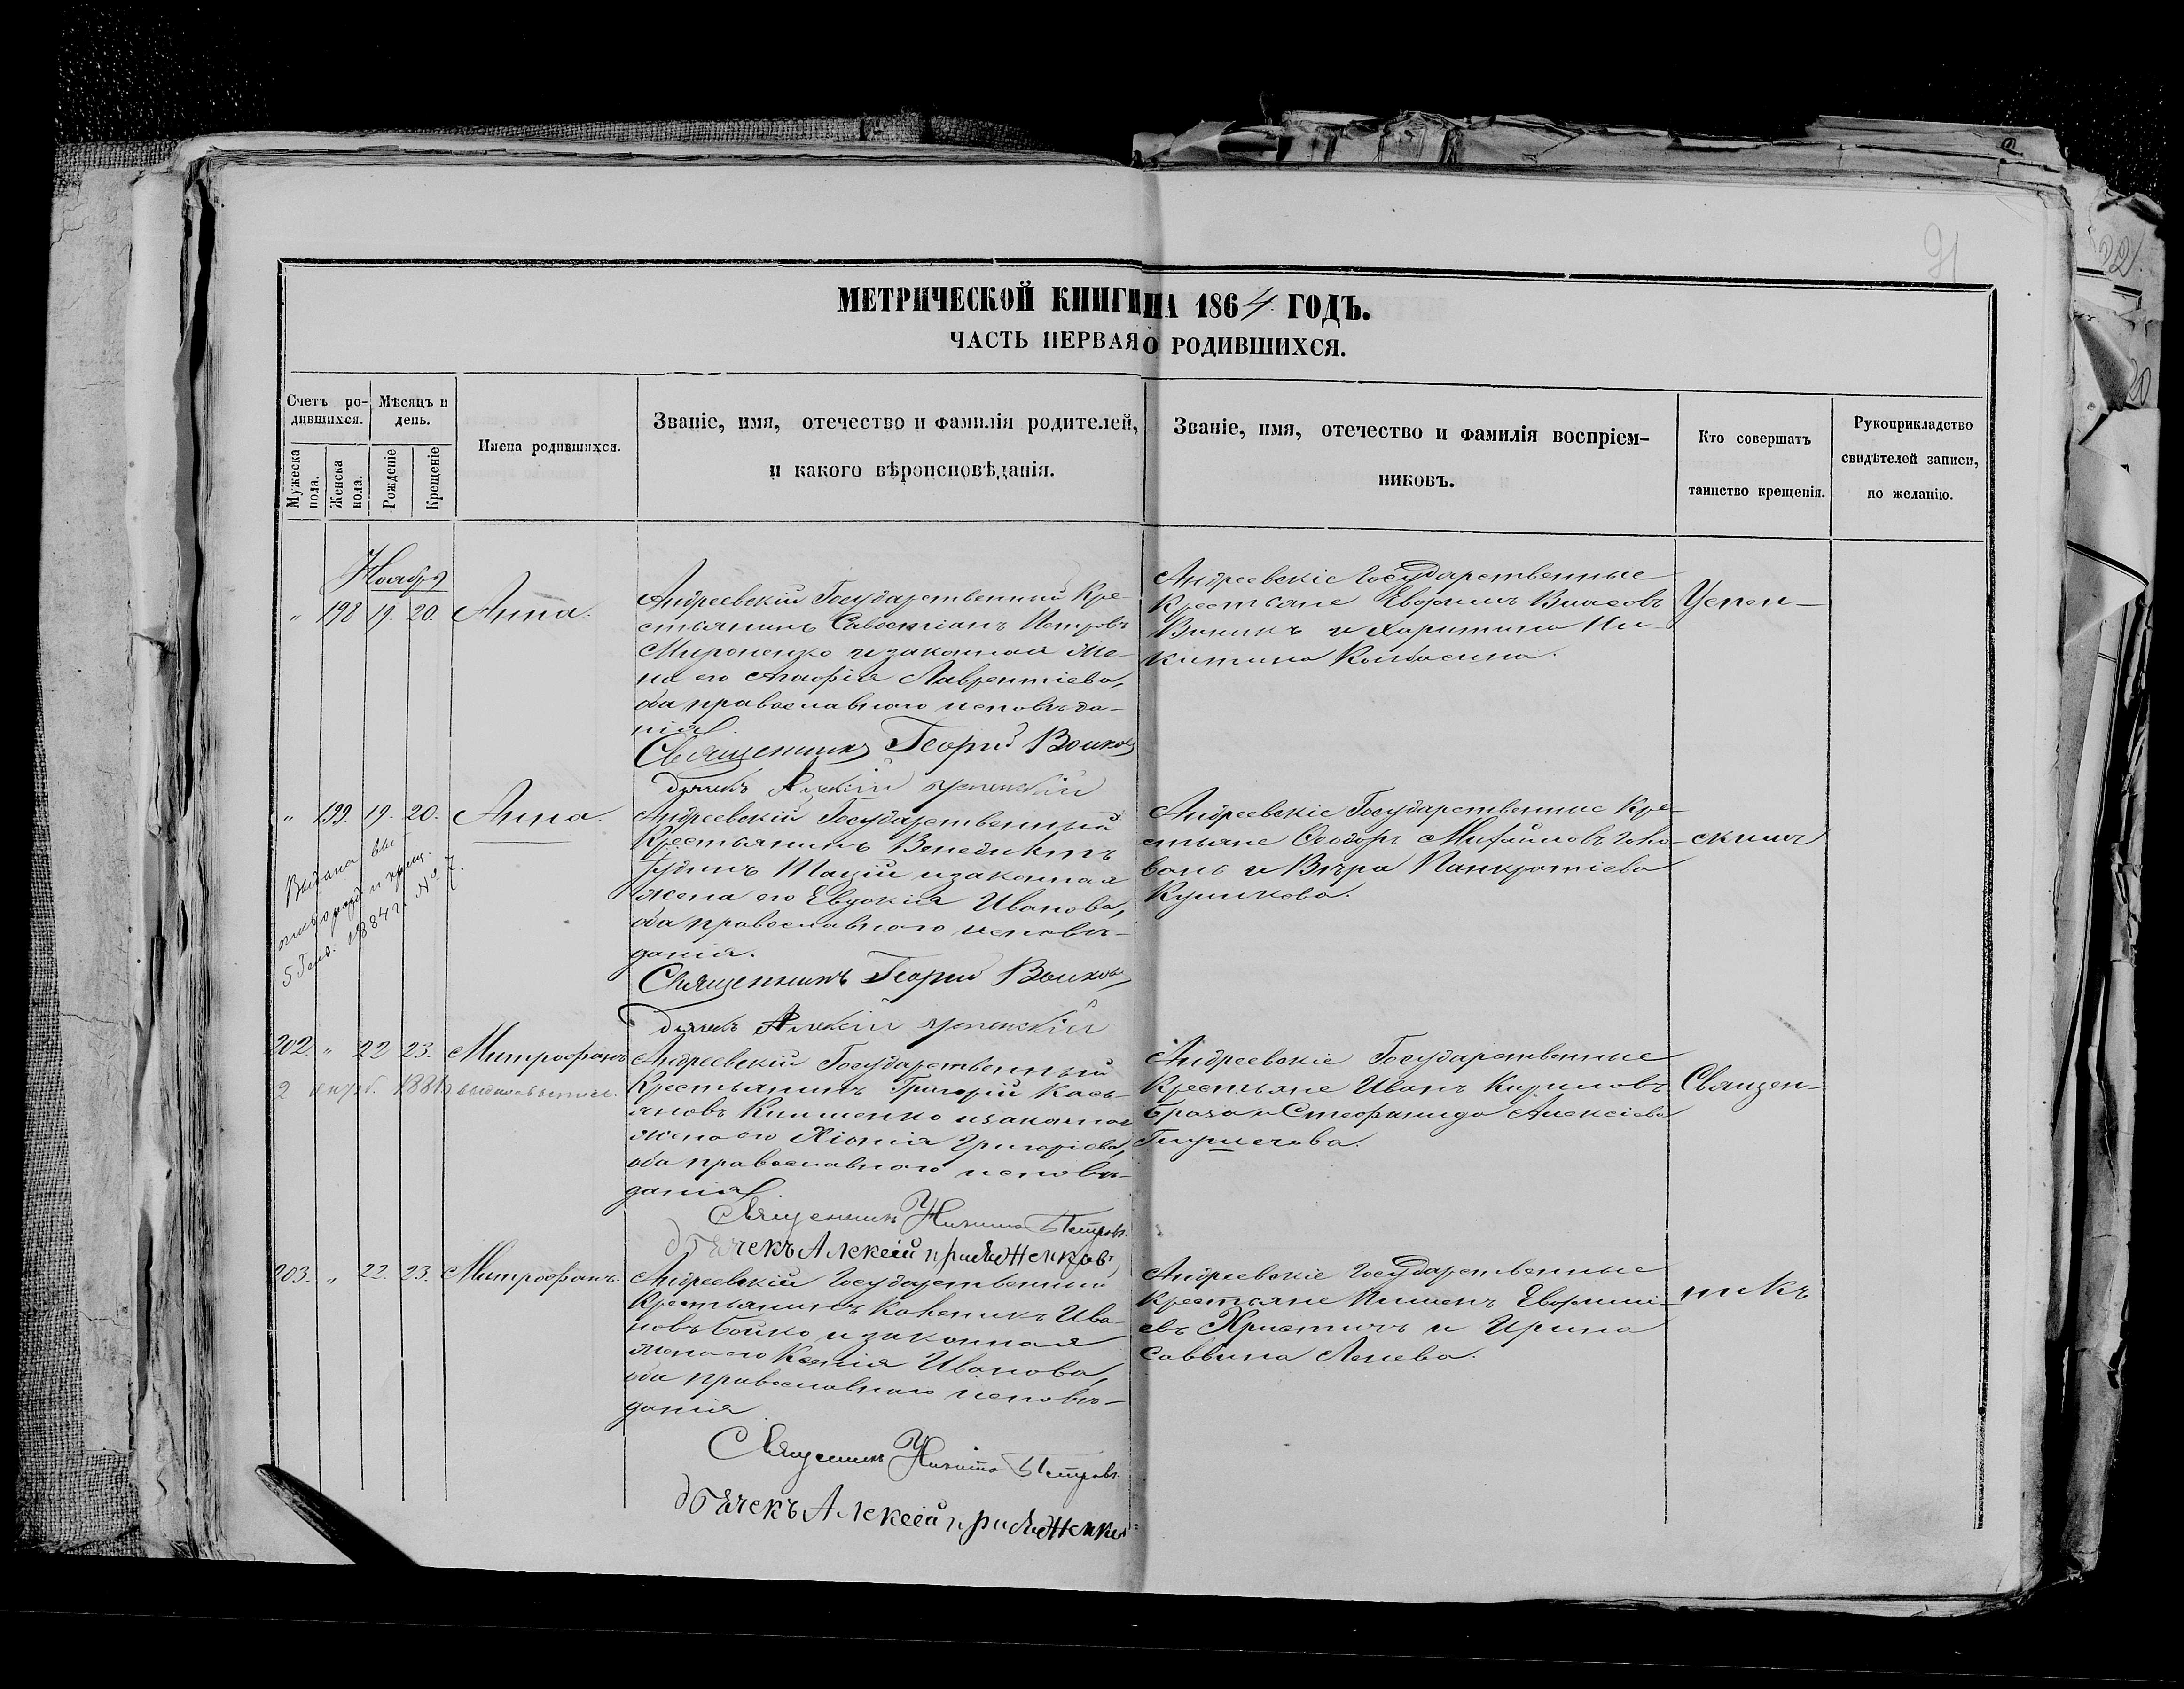 91
МЕТРИЧЕСКОЙ КНИГИ НА 1864 ГОДЪ.
ЧАСТЬ ПЕРВАЯ О РОДИВШИХСЯ.
Счетъ ро-
дившихся.
Мужеска пола.
Женска пола.
Мѣсяцъ и
день.
Рожденіе
Крещеніе
Имена родившихся.
Званіе, имя, отечество и фамилія родителей,
и какого вѣроисповѣданія.
Званіе, имя, отечество и фамилія воспріем-
никовъ.
Кто совершатъ
таинство крещенія.
Рукоприкладство
свидѣтелей записи,
по желанію.
Ноября
" 198 19. 20. Анна.
Андреевскій Государственный Кре-
стьянинъ Савостіанъ Петровъ
Мироненко и законная Же-
на его Агафія Лаврентіева,
оба православнаго исповѣда-
нія.
Священникъ Георгій Волковъ
дьячекъ
Андреевскіе Государственные
Крестьяне Евфимъ Власовъ
и Харитина Ни-
китина
Успен-
" 199. 19. 20. Анна.
Выдана вы
5 Генв. 1884 г. № 7.
Андреевскій Государственный
Крестьянинъ Венедиктъ
и законная
Жена его Евдокія Иванова,
оба православнаго исповѣ-
данія.
Священникъ Георгій Волковъ
дьячекъ
Андреевскіе Государственные Кре-
стьяне Феодоръ Михайловъ
и Вѣра Панкратіева
Куликова.
скимъ
202. " 22 23. Митрофанъ
2 1886
Андреевскій Государственный
Крестьянинъ Григорій Кась-
яновъ Клименко и законная
жена его Хіонія Григоріева,
оба православнаго исповѣ-
данія.
Священникъ Никита Петровъ.
дьячекъ Алексій
Андреевскіе Государственные
Крестьяне Иванъ Кириловъ
и Стефанида Алексіева
Священ-
203. " 22. 23. Митрофанъ.
Андреевскій Государственный
Крестьянинъ Каленикъ Ива-
новъ Бойко и законная
жена его Ксенія Иванова,
оба православнаго исповѣ-
данія
Священникъ Никита Петровъ.
дьячекъ Алексій
Андреевскіе Государственные
Крестьяне Пименъ Евфимі-
евъ Христичъ и Ирина
Саввина
никъ